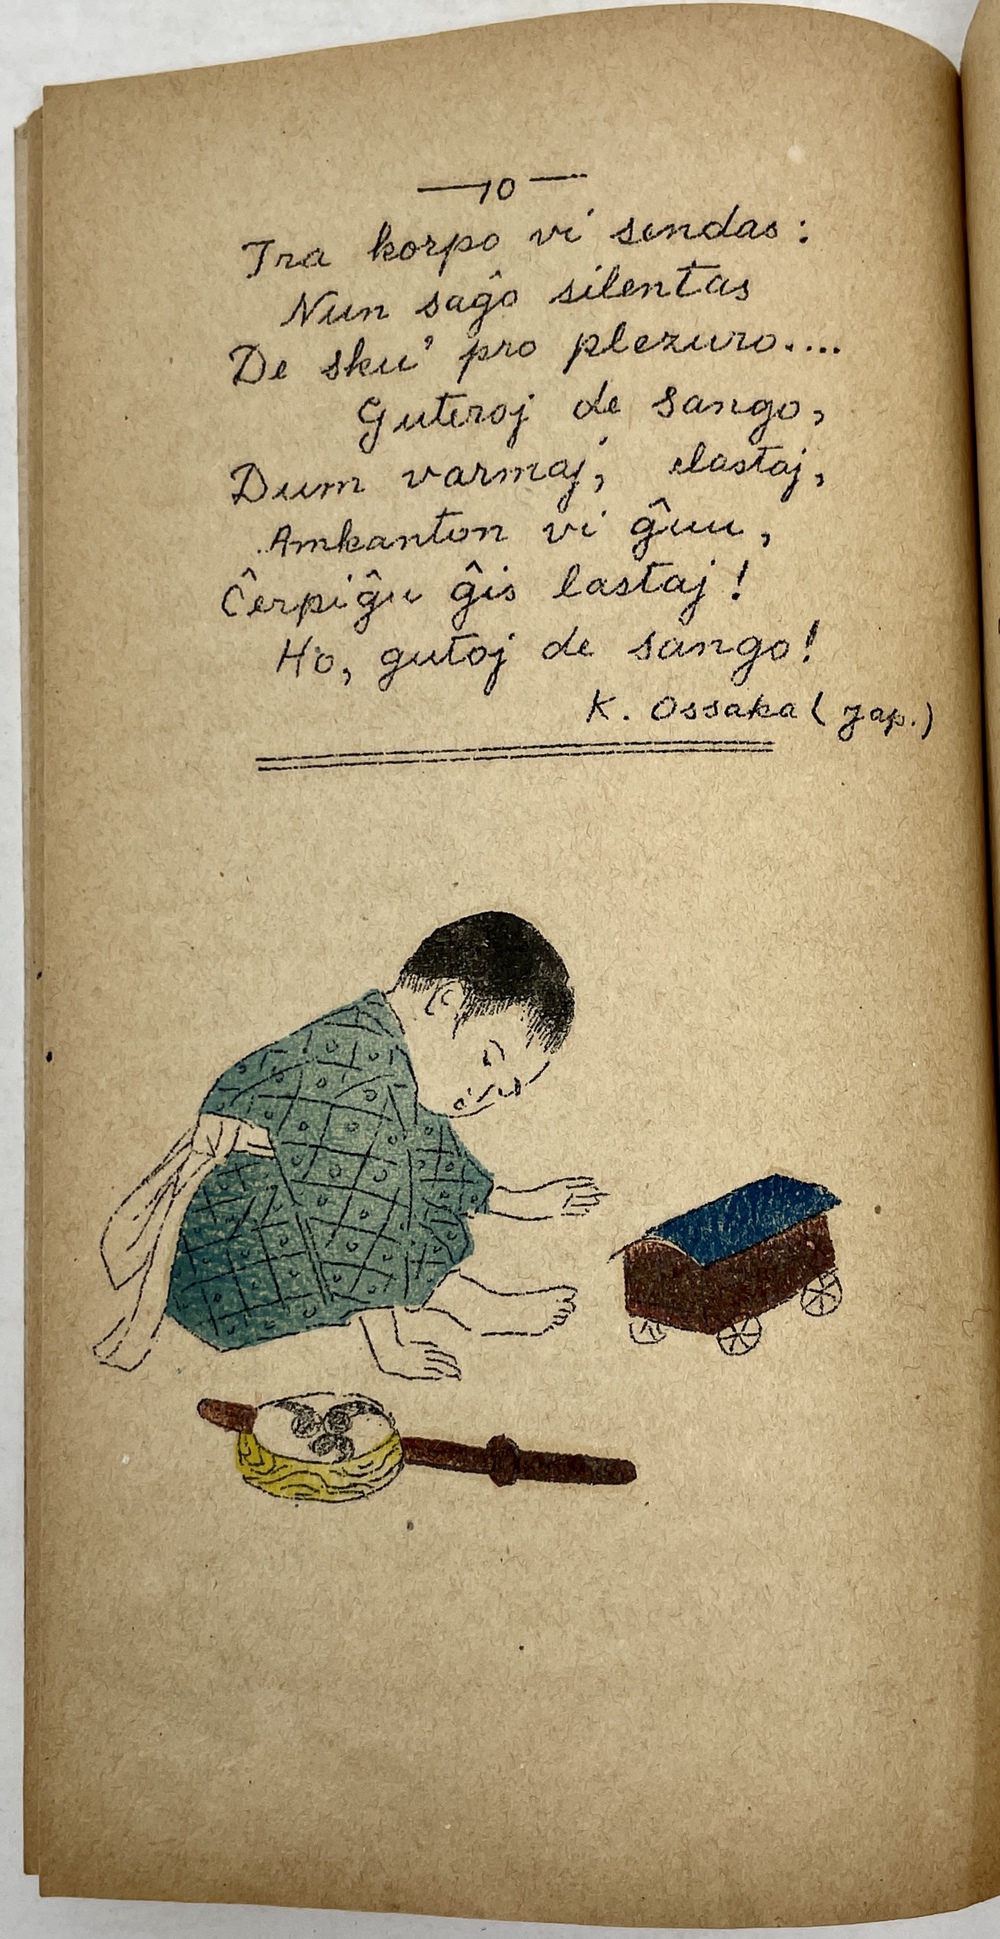 —10—
Tra korpo vi sendas:
Nun saĝo silentas
De sku' pro plezuro....
Guteroj de sango,
Dum varmaj, elastaj,
Amkanton vi ĝuu,
Ĉerpiĝu ĝis lastaj!
Ho, gutoj de sango!
K. Ossaka (Jap.)